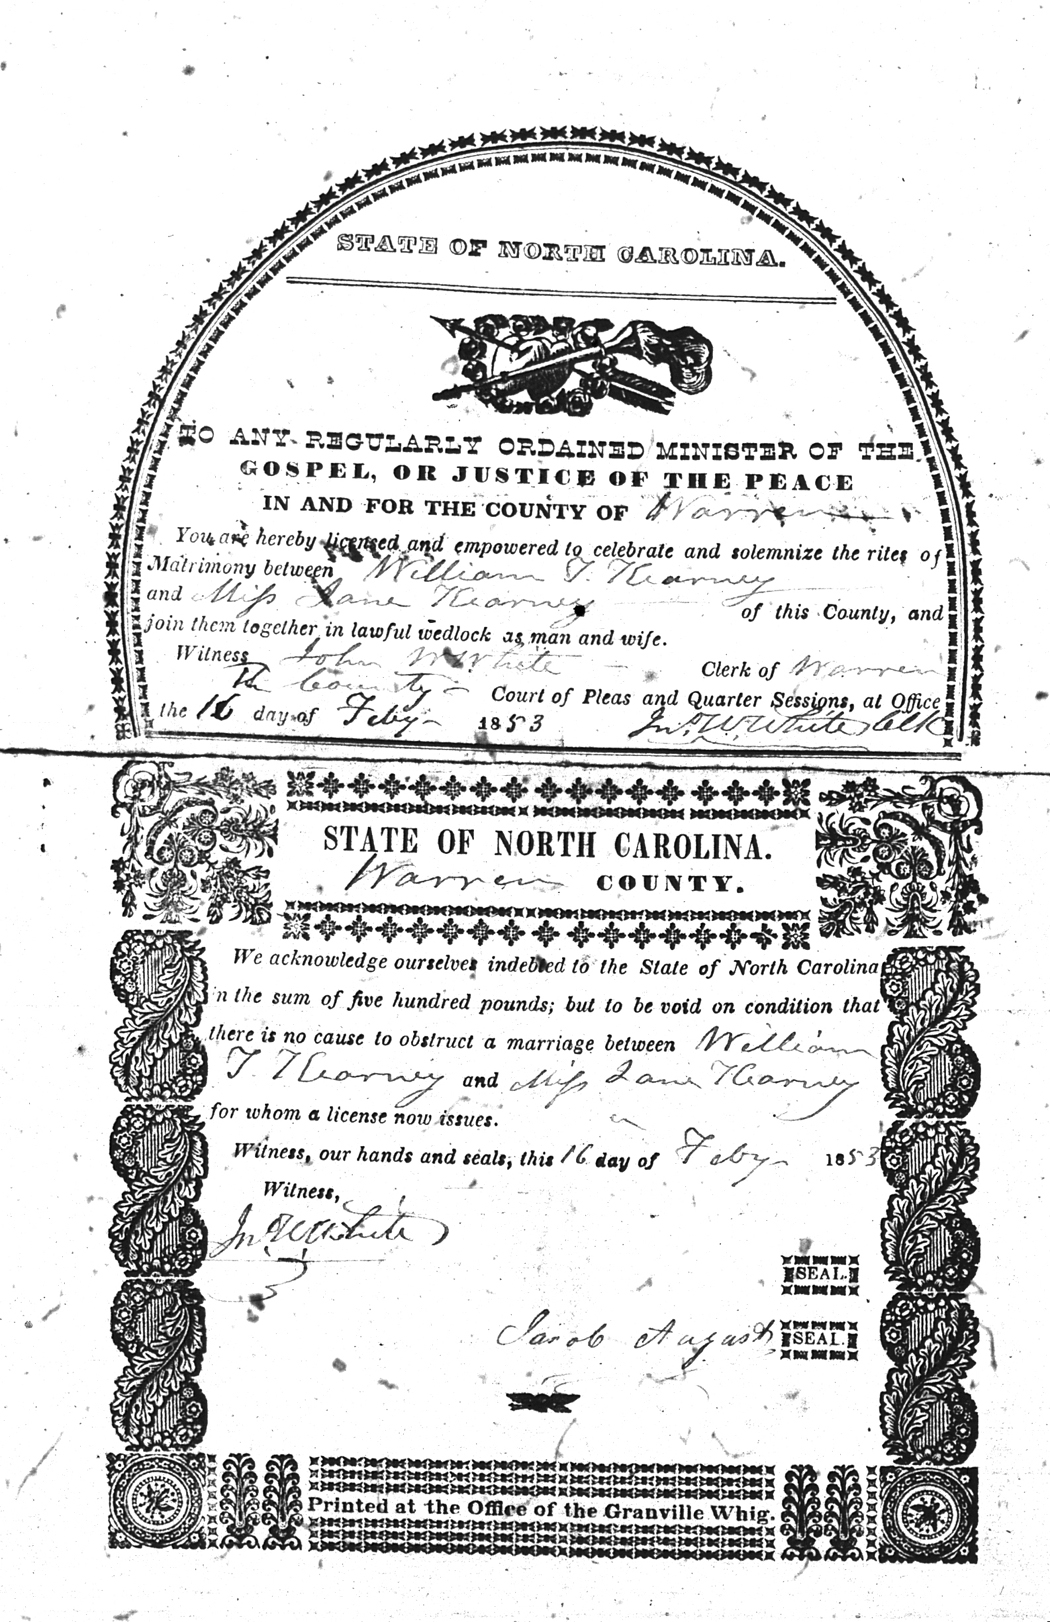 STATE OF NORTH CAROLINA.
TO ANY REGULARLY ORDAINED MINISTER OF THE
GOSPEL, OR JUSTICE OF THE PEACE
IN AND FOR THE COUNTY OF Warren
You are hereby licensed and empowered to celebrate and solemnize the rites of
Matrimony between William T. Kearney
and Miss Jane Kearney of this County, and
join them together in lawful wedlock as man and wife.
Witness John W White Clerk of Warren
County Court of Pleas and Quarter Sessions, at Office
the 16 day of Feby 1853 Jno. W. White Clk
STATE OF NORTH CAROLINA.
Warren COUNTY.
We acknowledge ourselves indebted to the State of North Carolina
in the sum of five hundred pounds; but to be void on condition that
there is no cause to obstruct a marriage between William
T. Kearney and Miss Jane Kearney
for whom a license now issues.
Witness, our hands and seals, this 16 day of Feby 1853
Witness,
Jno W White
SEAL.
Jacob August SEAL.
Printed at the Office of the Granville Whig.